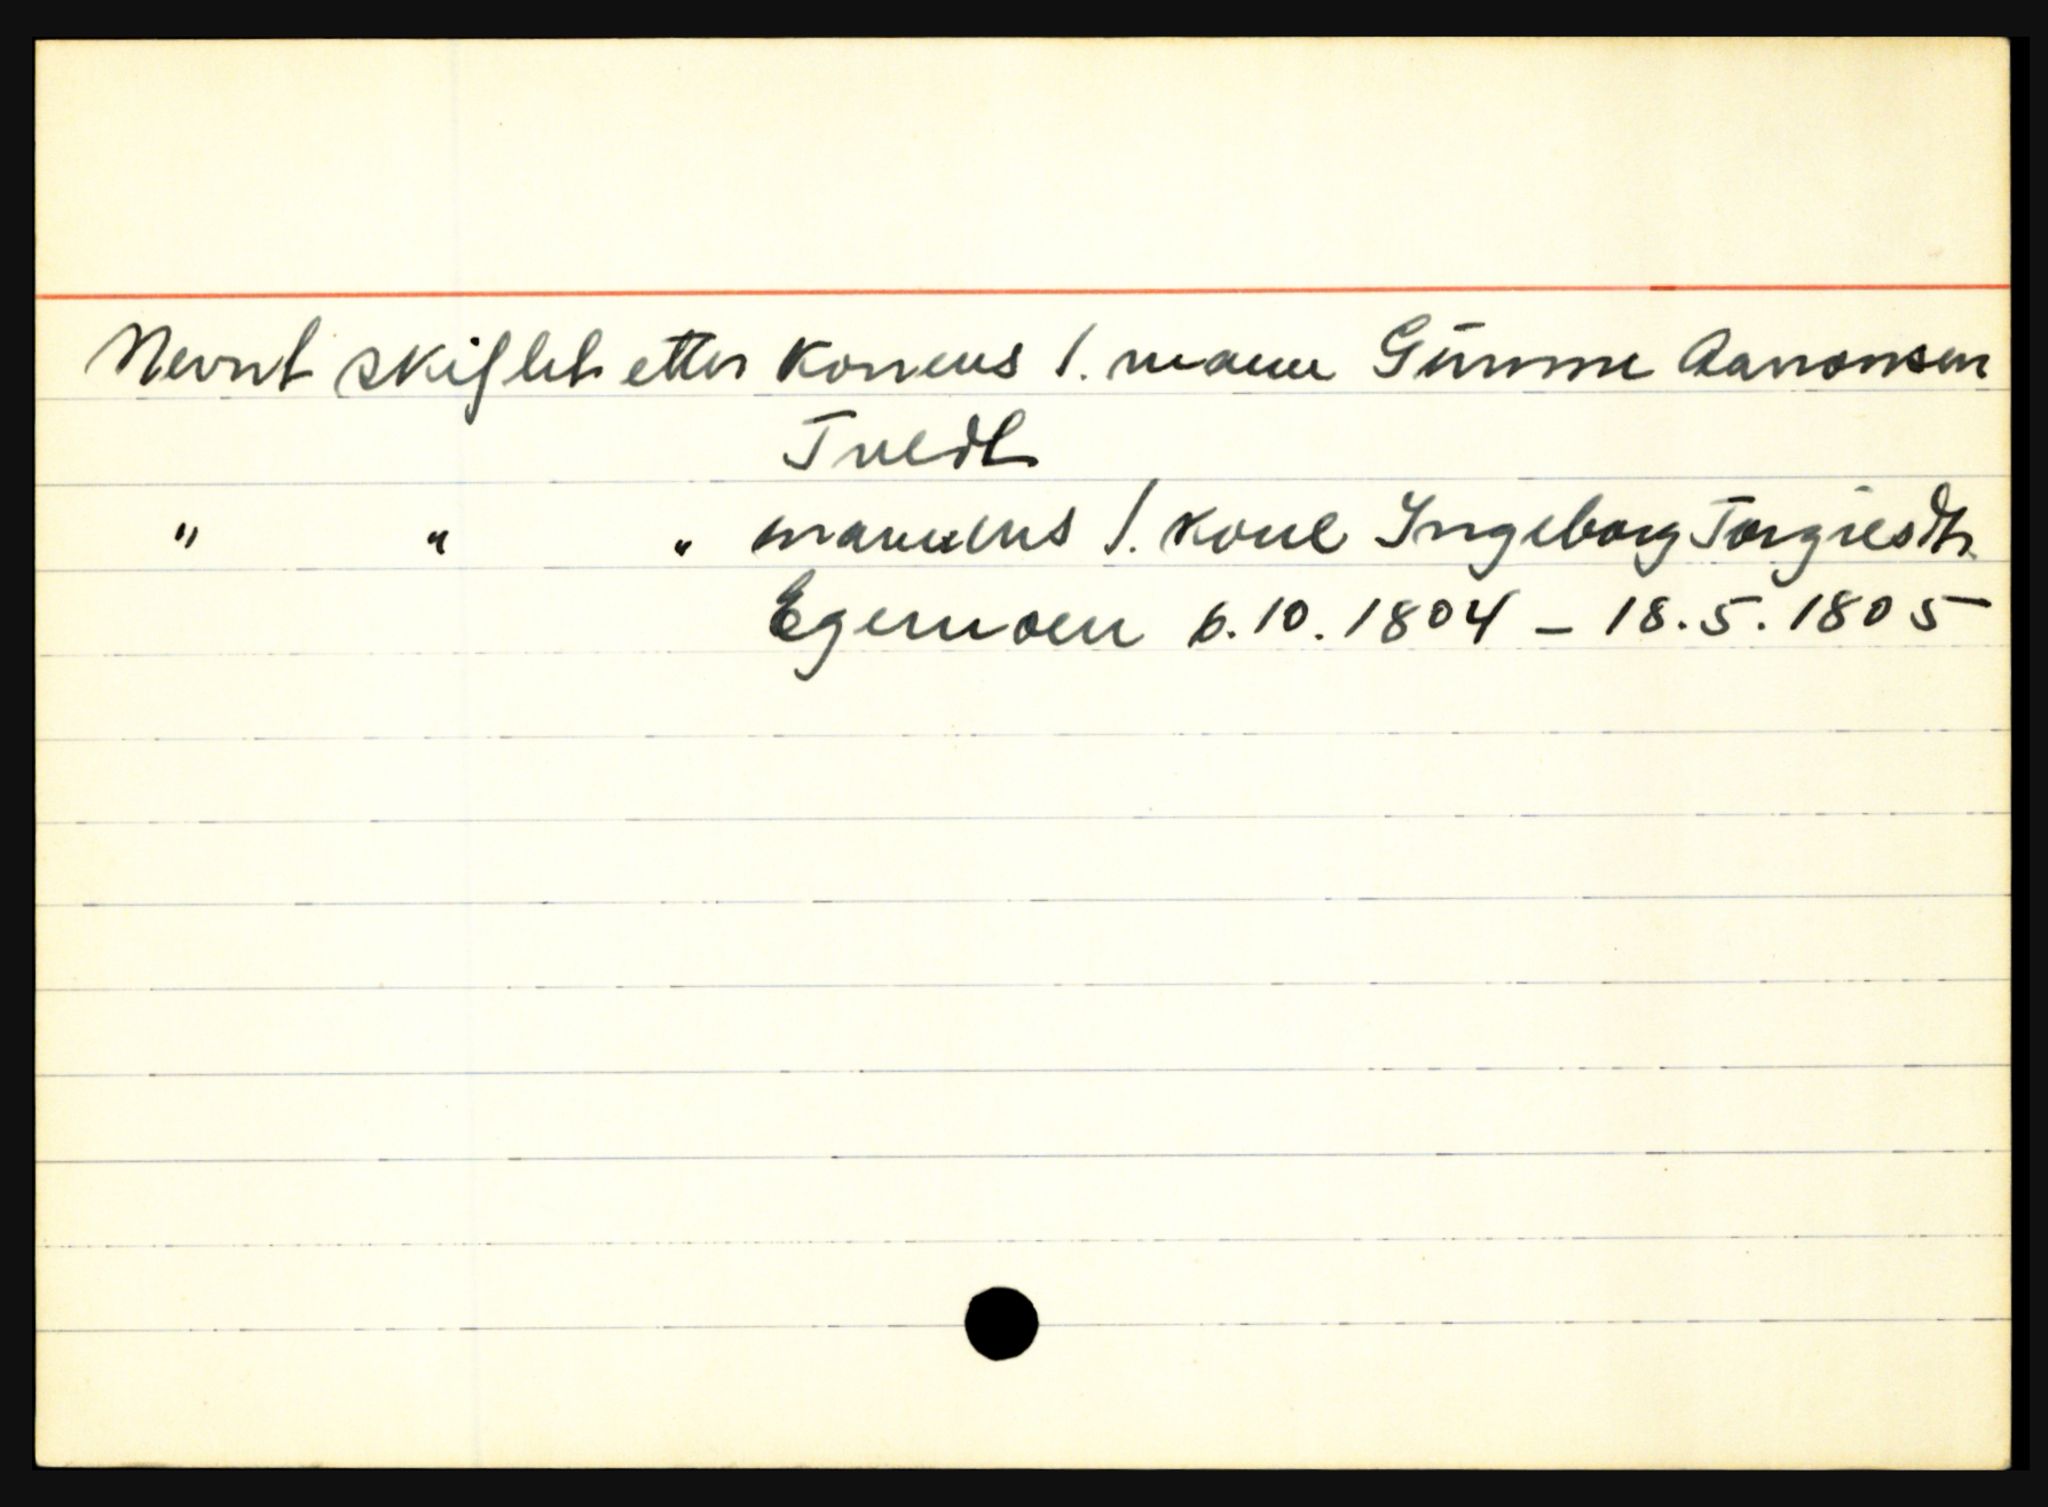 Nevnt skiftet etter konens 1. mann Gunne Aanonsen
Tvedt
" " " mannens 1. kone Ingeborg Torgiesdtr.
Egemoen 6.10.1804 – 18.5.1805